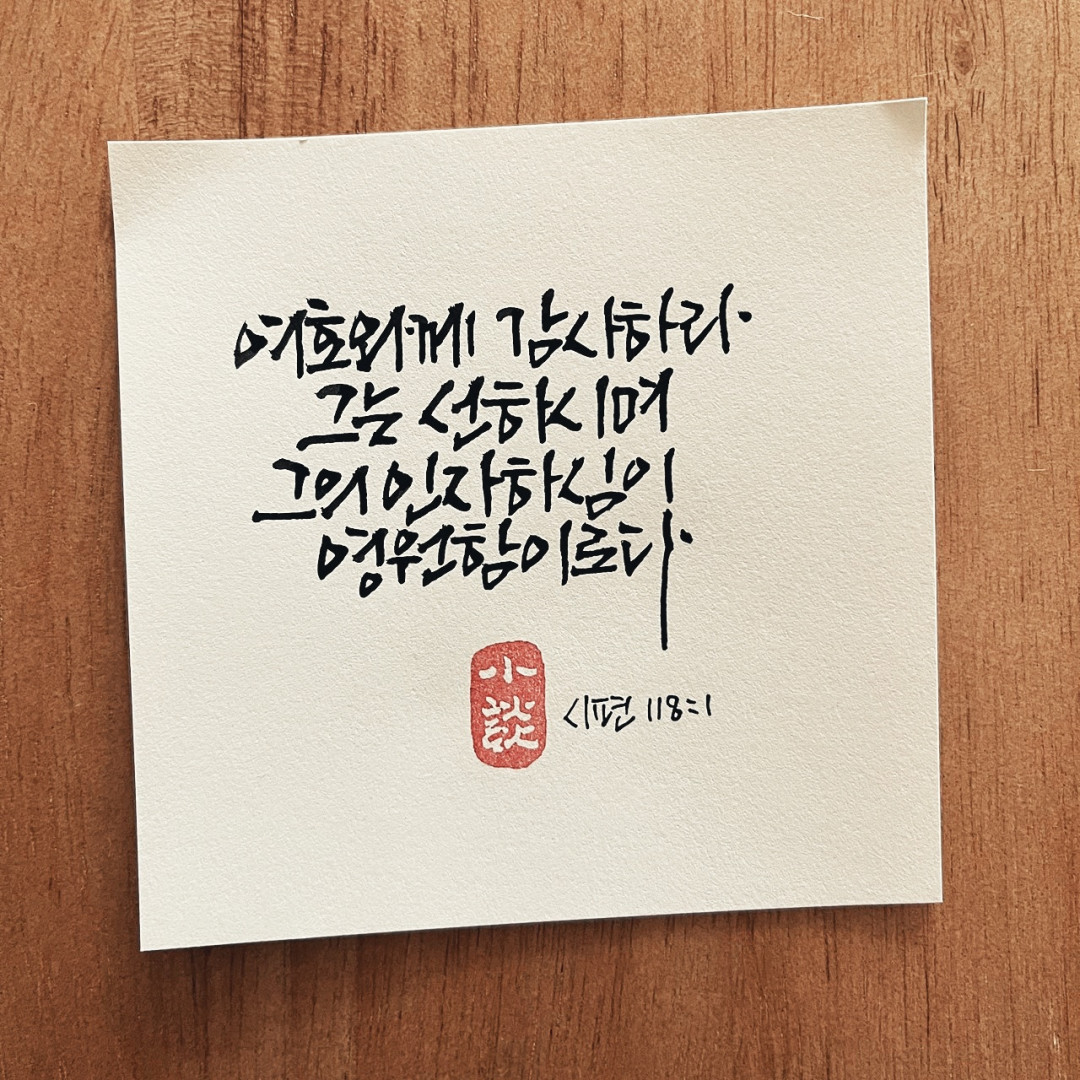 여호와께 감사하라.
그는 선하시며
그의 인자하심이
영원함이로다.
小談
시편 118:1